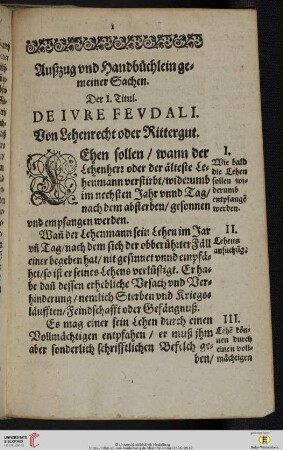 I
Außzug vnd Handbüchlein ge-
meiner Sachen.
Der I. Titul.
DE IVRE FEVDALI.
Von Lehenrecht oder Rittergut.
LEhen sollen / wann der
Lehenherr oder der älteste Le-
henmann verstirbt / widerumb
im nechsten Jahr vnnd Tag /
nach dem absterben / gesonnen
vnd empfangen werden.
Wañ der Lehenmann sein Lehen im Jar
vñ Tag / nach dem sich der obberührter Fall
einer begeben hat / nit gesinnet vnnd empfä-
het / so ist er seines Lehens verlüstigt. Er ha-
be dañ dessen erhebliche Vrsach vnd Ver-
hinderung / nemlich Sterben vnd Kriegs-
läufften / Feindschafft oder Gefängnuß.
Es mag einer sein Lehen durch einen
Vollmächtigen entpfahen / er muß ihm
aber sonderlich schrifftlichen Befelch ge-
ben /
I.
Wie bald
die Lehen
sollen wi-
derumb
entpfangē
werden.
II.
Lehens
III.
Lehē kön-
nen durch
einen voll-
mächtigen